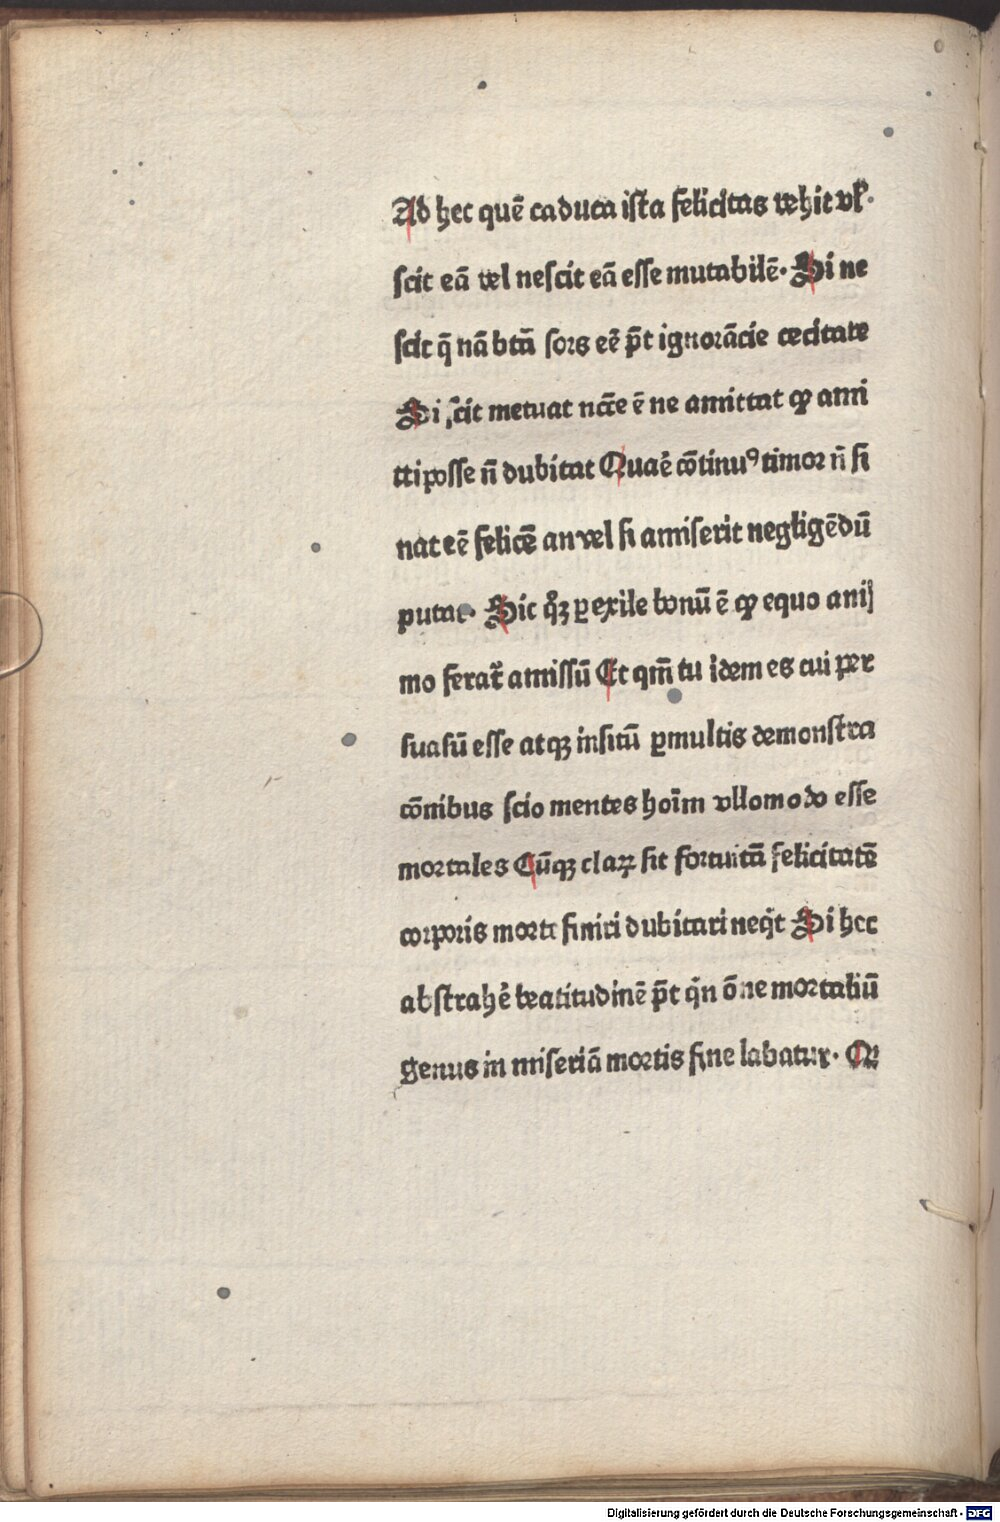 Ad hec quē caduca ista felicitas vehit vl̕.
scit eā vel nescit eā esse mutabilē. Si ne
scit q̄ nā btā sors eē p̄t ignorācie cecitate
Si scit metuat ncc̄e ē ne amittat qꝫ ami
tti posse n̄ dubitat Quaē cōtinuꝰ timor n̄ si
nat eē felicē an vel si amiserit negligēdū
putat. Sic qͦꝫ ꝑexile bonū ē qꝫ equo ani
mo feratᷣ amissū Et qm̄ tu idem es cui per
suasū esse atqꝫ insitū ꝑmultis demonstra
cōnibus scio mentes hoīm vllomodo esse
mortales Cūqꝫ claꝝ sit fortuitā felicitatē
corporis morte finiri dubitari neqͥt Si hec
abstrahē beatitudinē p̄t qͥn ōne mortaliū
genus in miseriā mortis fine labatur. Q
Digitalisierung gefördert durch die Deutsche Forschungsgemeinschaft - DFG